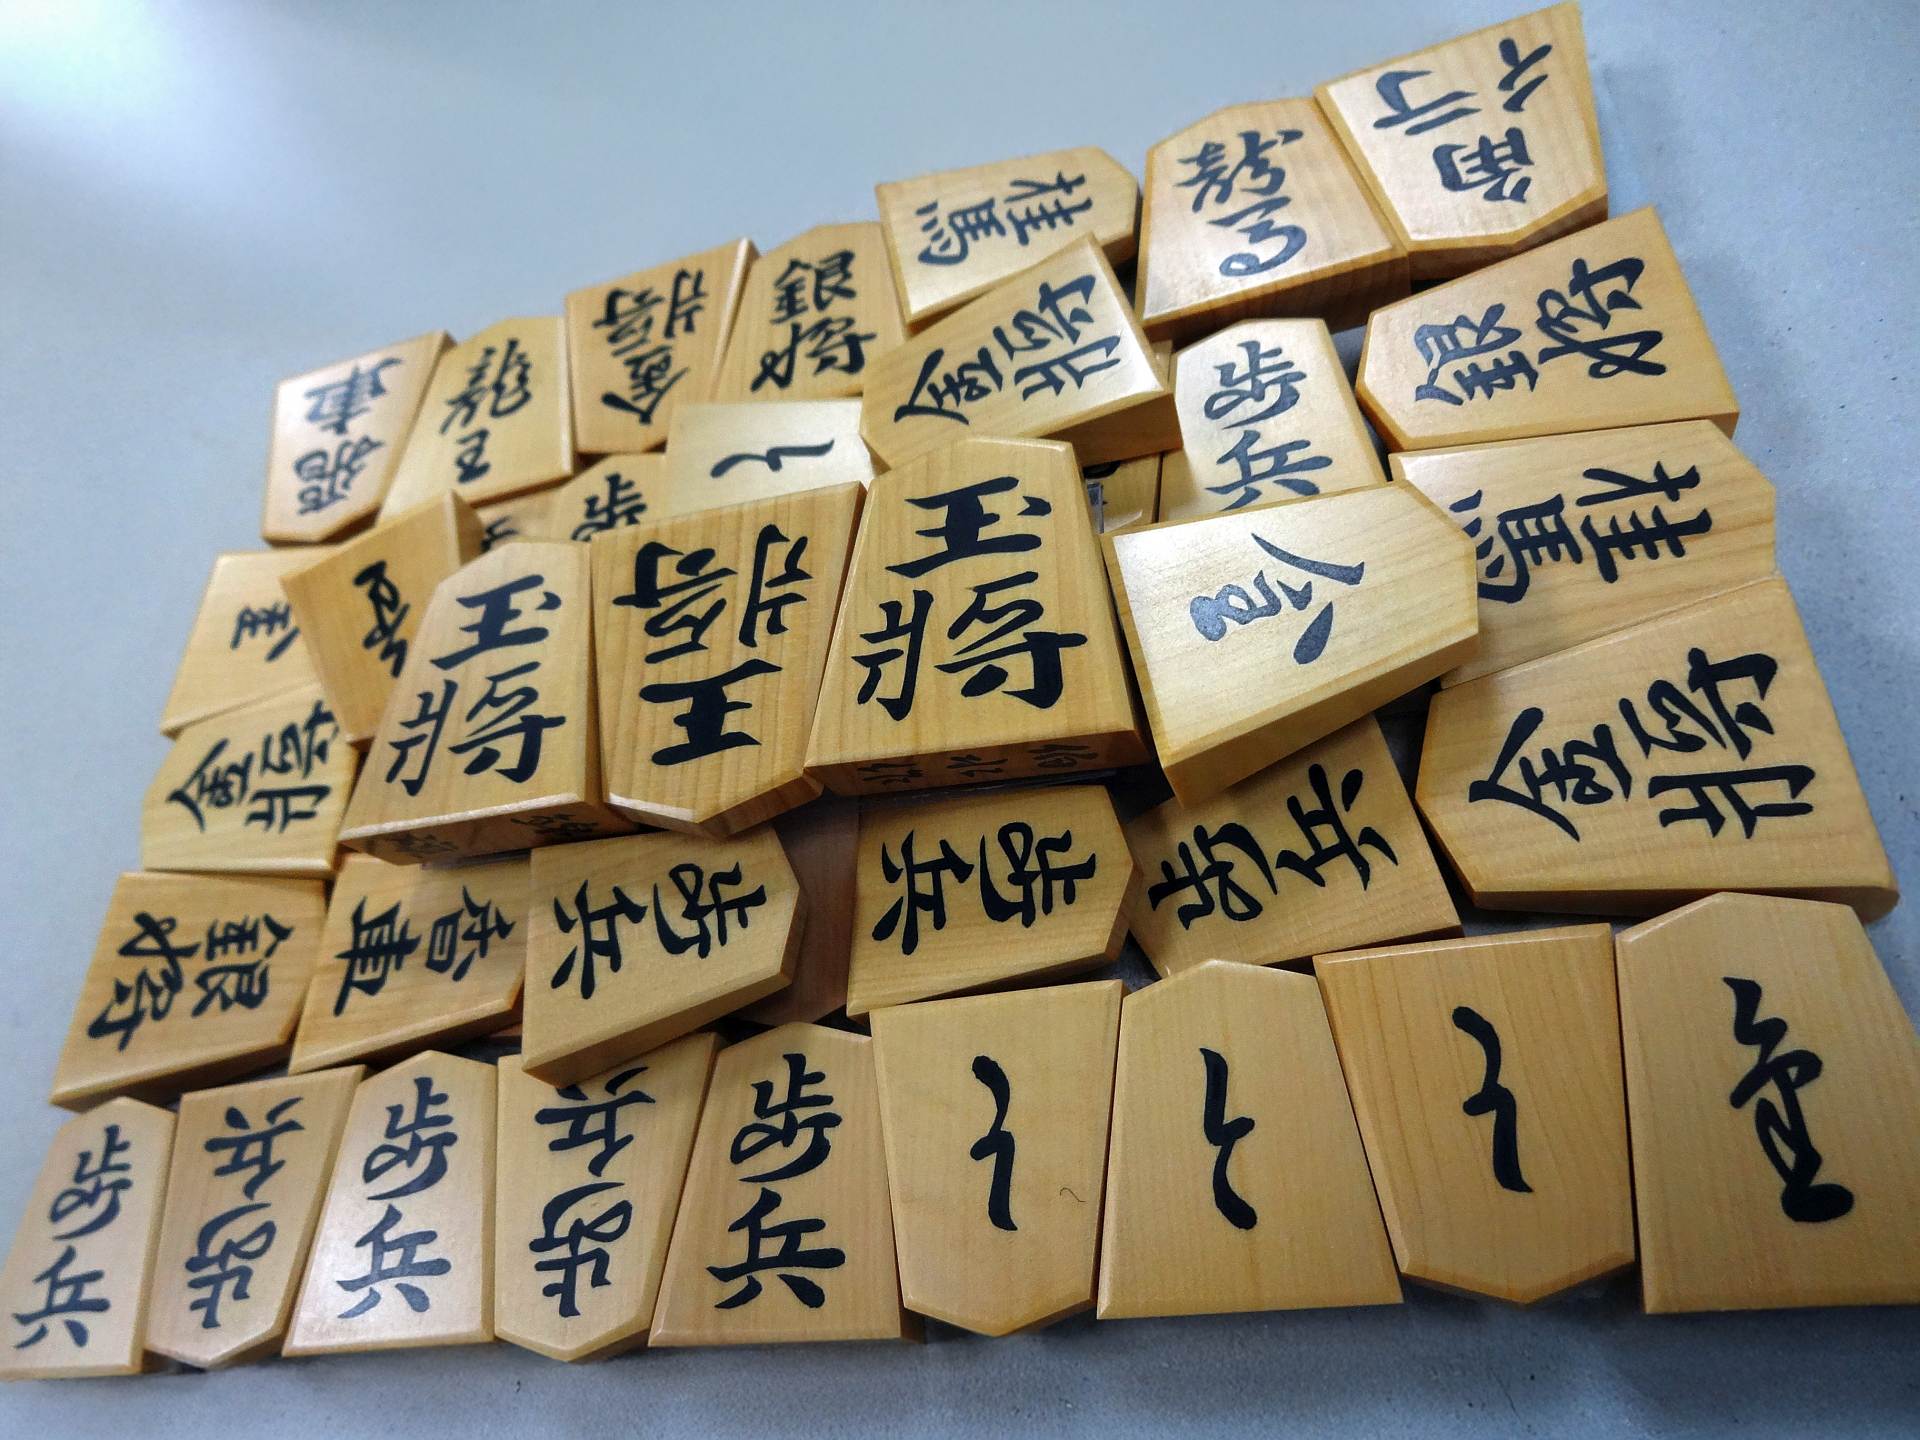 桂馬
龍馬
角行
香車
龍王
金将
銀将
金将
歩兵
銀将
と
歩
桂馬
玉将
王将
玉将
金将
金将
銀将
香車
歩兵
歩兵
歩兵
歩兵
歩兵
歩兵
歩兵
歩兵
と
と
と